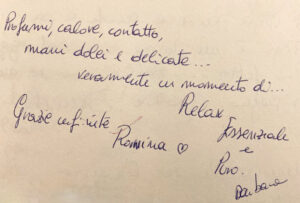 Profumi, calore, contatto,
mani dolci e delicate...
veramente un momento di...
Relax
Essenziale
e
Puro.
Grazie infinite
Romina ♡
Barbara